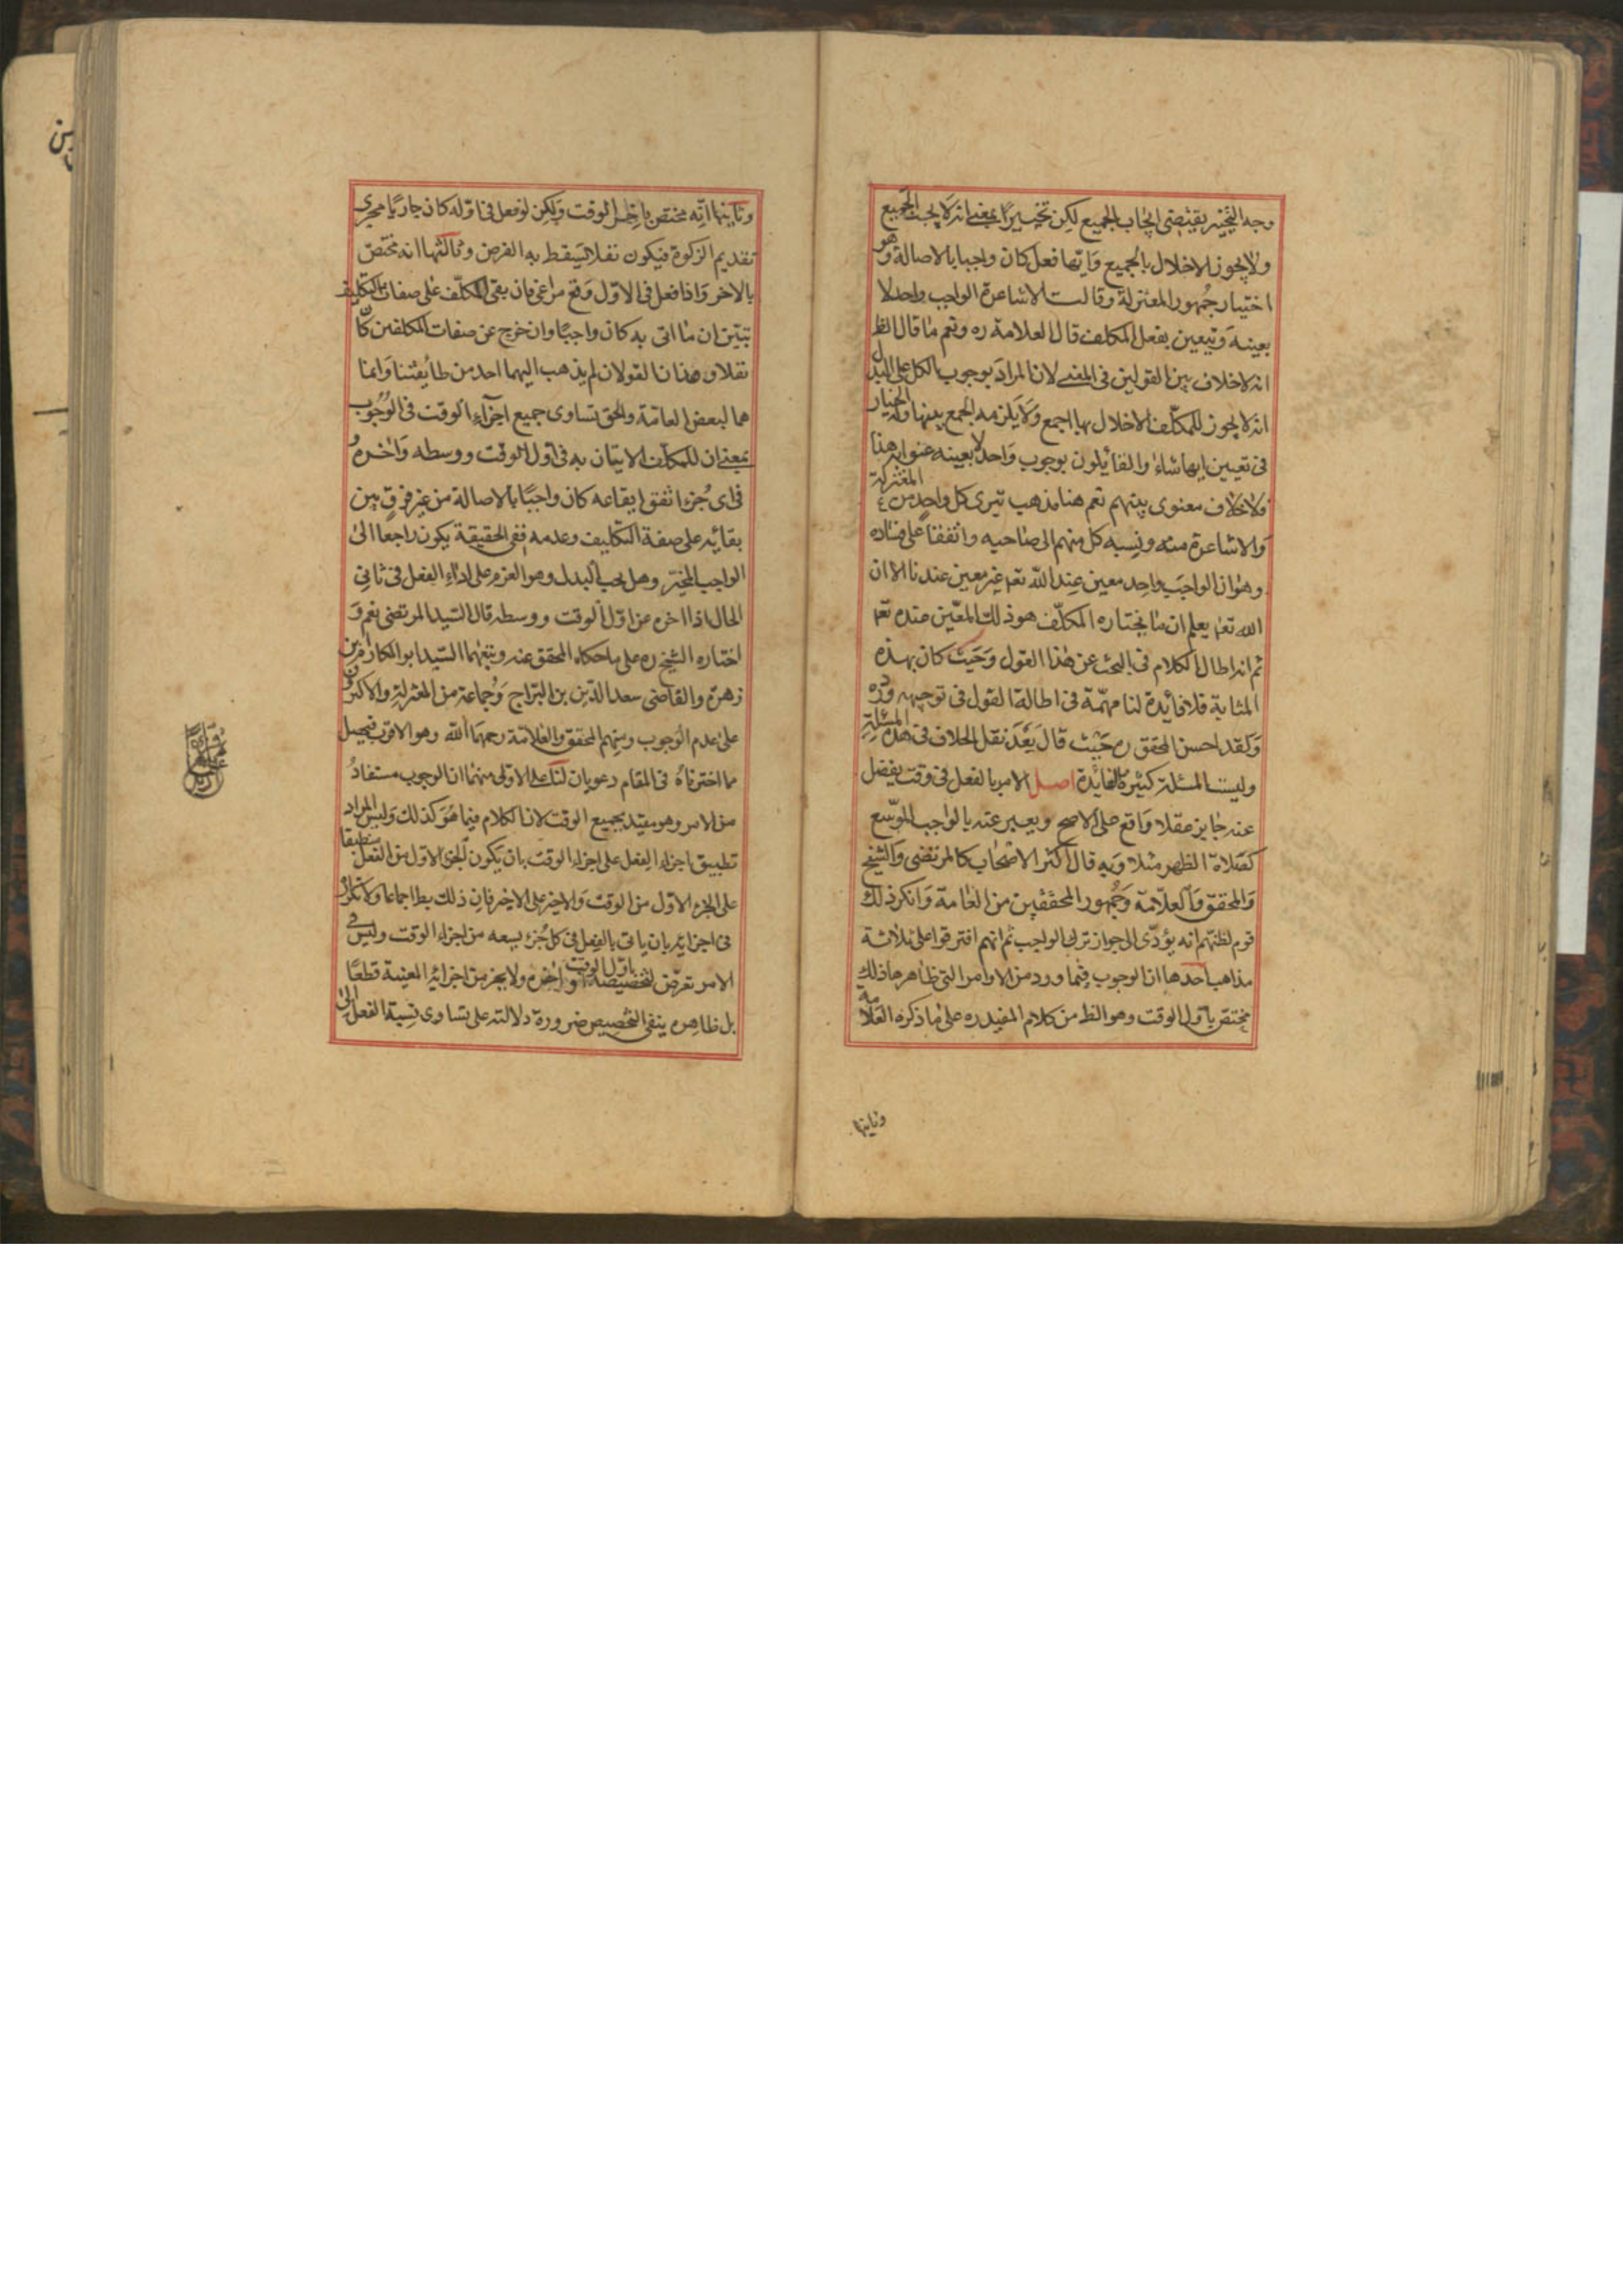 وجه التخيير يقتضى ايجاب الجميع لكن تخييرا بمعنى انه لا يجب الجميع
ولا يجوز الاخلال بالجميع وايها فعل كان واجبا بالاصالة وهو
اختيار جمهور المعتزلة وقالت الاشاعرة الواجب واحد لا
بعينه ويتعين بفعل المكلف قال العلامة ره ونعم ما قال الظ
انه لا خلاف بين القولين فى المعنى لان المراد بوجوب الكل على البدل
انه لا يجوز للمكلف الاخلال بها اجمع ولا يلزمه الجمع بينها وله الخيار
فى تعيين ايها شاء والقائلون بوجوب واحد لا بعينه عنوا به هذا
فلا خلاف معنوى بينهم نعم هنا مذهب تبرى كل واحد من المعتزلة
والاشاعرة منه ونسبه كل منهم الى صاحبه واتفقا على فساده
وهو ان الواجب واحد معين عند الله تعم غير معين عندنا الا ان
الله تعم يعلم ان ما يختاره المكلف هو ذلك المعين عنده تعم
ثم انه اطال الكلام فى البحث عن هذا القول وحيث كان بهذه
المثابة فلا فائدة لنا مهمة فى اطالة القول فى توجيهه ورده
ولقد احسن المحقق ره حيث قال بعد نقل الخلاف فى هذه المسئلة
وليست المسئلة كثيرة الفائدة اصل الامر بالفعل فى وقت يفضل
عنه جايز عقلا واقع على الاصح ويعبر عنه بالواجب الموسع
كصلاة الظهر مثلا وبه قال اكثر الاصحاب كالمرتضى والشيخ
والمحقق والعلامة وجمهور المحققين من العامة وانكر ذلك
قوم لظنهم انه يؤدى الى جواز ترك الواجب ثم انهم افترقوا على ثلاثة
مذاهب احدها ان الوجوب فيما ورد من الاوامر التى ظاهرها ذلك
مختص باول الوقت وهو الظ من كلام المفيد ره على ما ذكره العلامة
وثانيها
وثانيها انه مختص باخر الوقت ولكن لو فعل فى اوله كان جاريا مجرى
تقديم الزكوة فيكون نفلا يسقط به الفرض وثالثها انه مختص
بالاخر واذا فعل فى الاول وقع مراعى فان بقى المكلف على صفات التكليف
تبين ان ما اتى به كان واجبا وان خرج عن صفات المكلفين كان
نفلا وهذان القولان لم يذهب اليهما احد من طائفتنا وانما
هما لبعض العامة والحق تساوى جميع اجزاء الوقت فى الوجوب
بمعنى ان للمكلف الاتيان به فى اول الوقت ووسطه واخره
فاى جزء اتفق ايقاعه كان واجبا بالاصالة من غير فرق بين
بقائه على صفة التكليف وعدمه ففى الحقيقة يكون راجعا الى
الواجب المخير وهل يجب البدل وهو العزم على اداء الفعل فى ثانى
الحال اذا اخره عن اول الوقت ووسطه قال السيد المرتضى نعم و
اختاره الشيخ ره على ما حكاه المحقق عنه وتبعهما السيد ابو المكارم بن
زهرة والقاضى سعد الدين بن البراج وجماعة من المعتزلة والاكثرون
على عدم الوجوب ومنهم المحقق والعلامة رحمهما الله وهو الاقرب فيحصل
مما اخترناه فى المقام دعويان لنا على الاولى منهما ان الوجوب مستفاد
من الامر وهو مقيد بجميع الوقت لان الكلام فيما هو كذلك وليس المراد
تطبيق اجزاء الفعل على اجزاء الوقت بان يكون الجزء الاول من الفعل منطبقا
على الجزء الاول من الوقت والاخير على الاخير فان ذلك بط اجماعا ولا تكراره
فى اجزائه بان ياتى بالفعل فى كل جزء يسعه من اجزاء الوقت وليس فى
الامر تعرض لتخصيصه باول الوقت او اخره ولا بجزء من اجزائه المعينة قطعا
بل ظاهره ينفى التخصيص ضرورة دلالته على تساوى نسبة الفعل الى